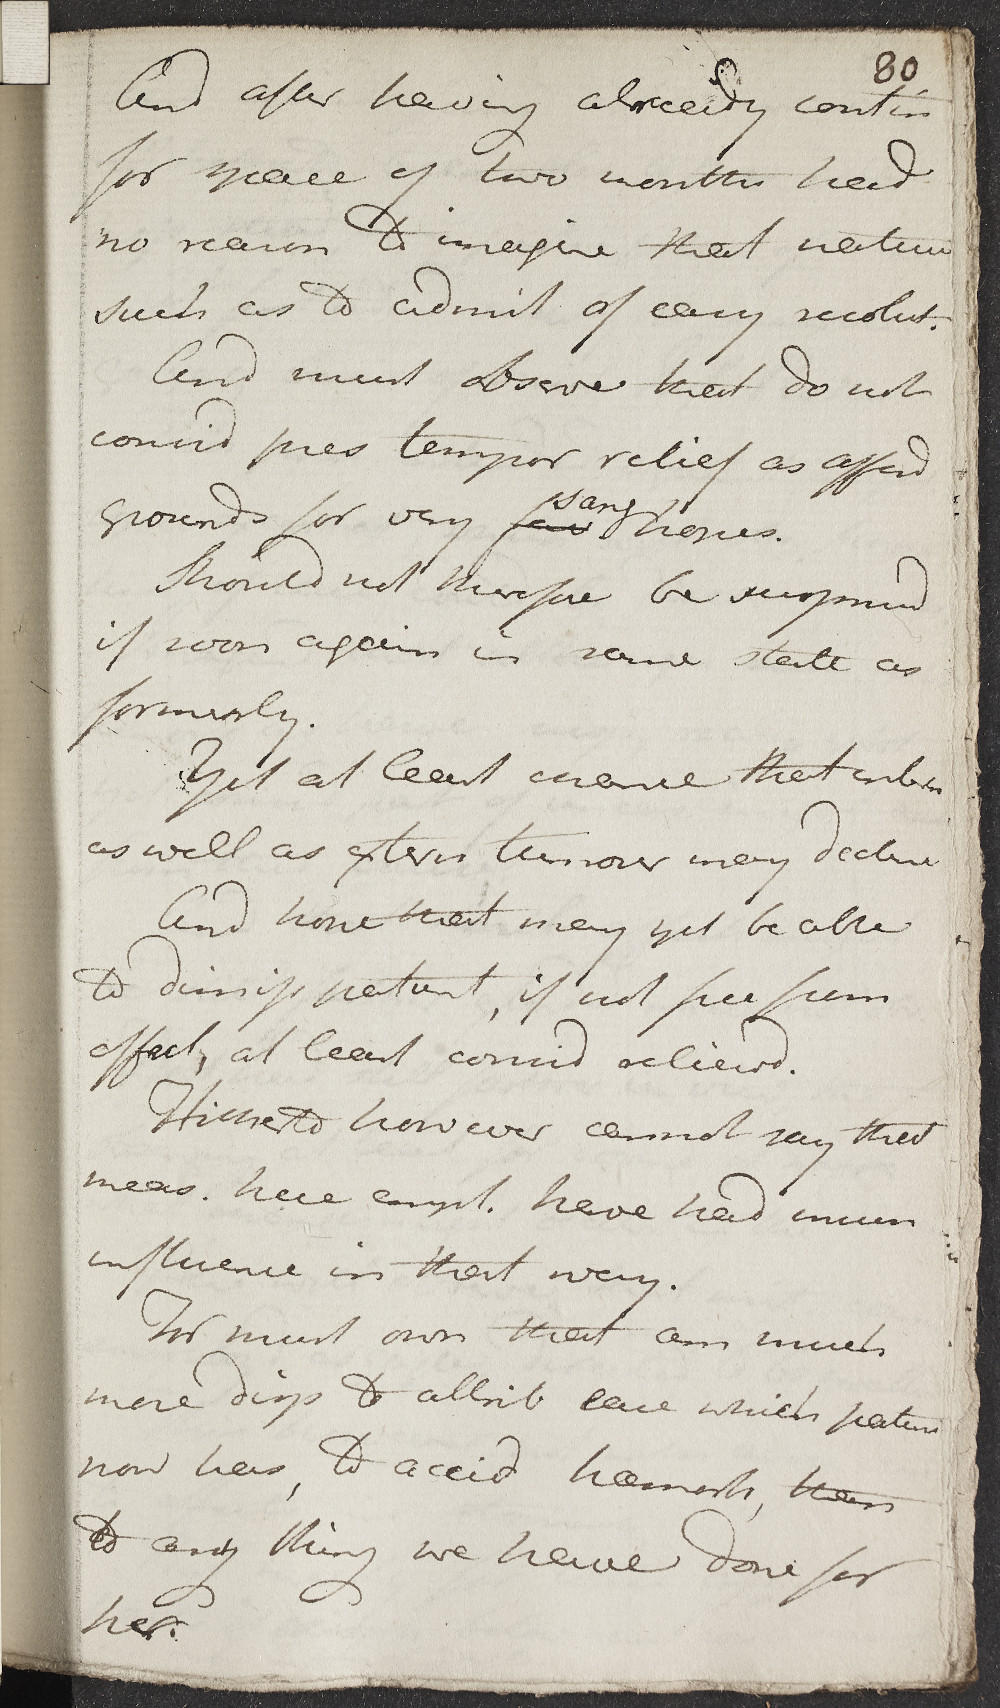 80
And after having already contin
for space of two months had
no reason to imagine that nature
such as to admit of easy resolut.
And must observe that do not
consid pres tempor relief as afford
grounds for very sang hopes.
Should not therefore be surprised
if soon again in same state as
formerly.
Yet at least chance that intern
as well as extern tumour may decline
And hope that may yet be able
to dismiss patient, if not free from
affect, at least consid reliev'd.
Hitherto however cannot say that
meas. here empl. have had much
influence in that way.
For must own that am much
more disps to attrib ease which patien
now has, to accid hæmorh, than
to any thing we have done for
her.